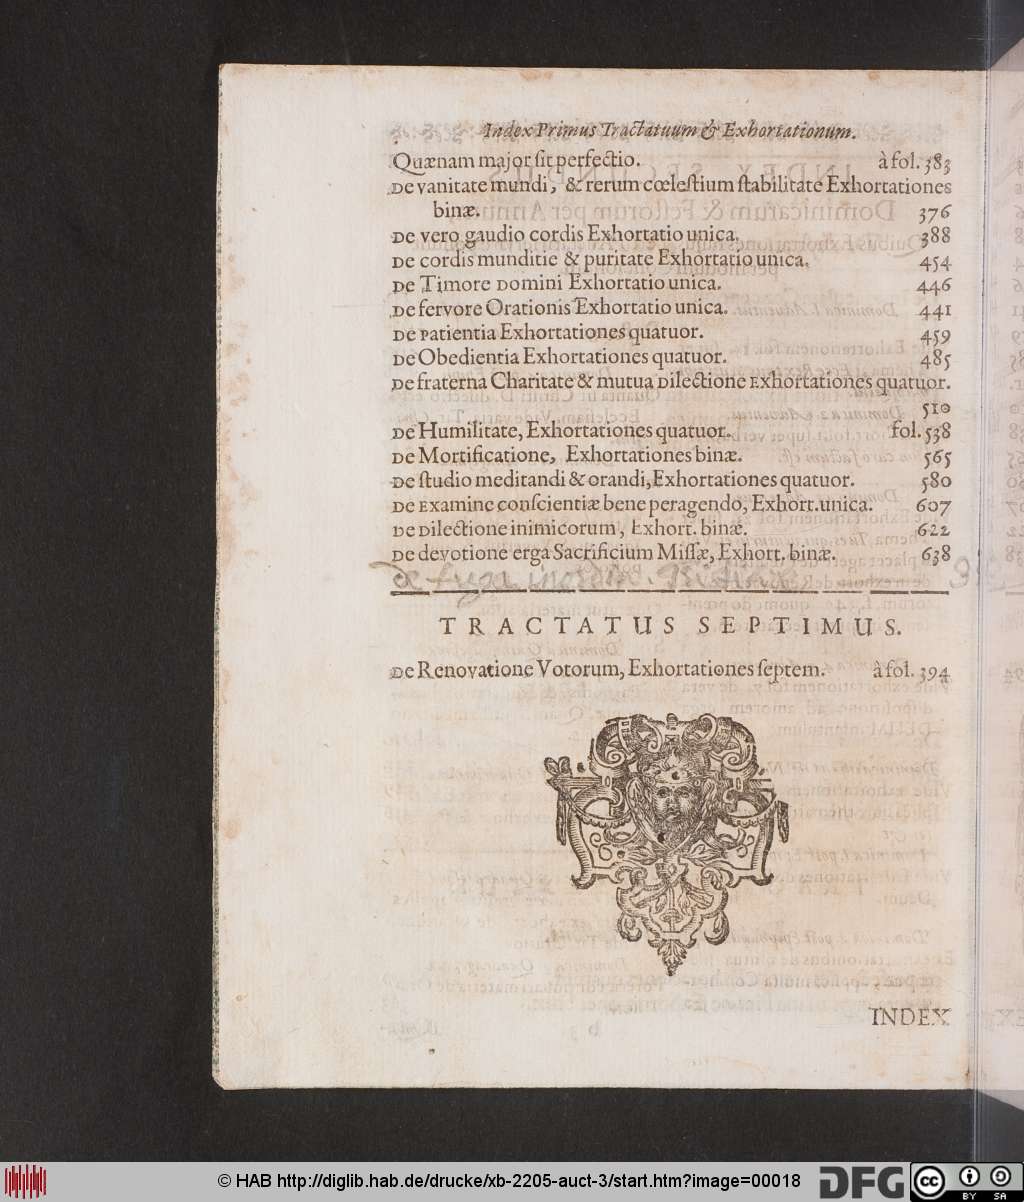 Index Primus Tractatuum & Exhortationum.
Quænam major ſit perfectio. à fol. 383
De vanitate mundi, & rerum cœleſtium ſtabilitate Exhortationes
binæ. 376
De vero gaudio cordis Exhortatio unica. 388
De cordis munditie & puritate Exhortatio unica. 454
De Timore Domini Exhortatio unica. 446
De fervore Orationis Exhortatio unica. 441
De Patientia Exhortationes quatuor. 459
De Obedientia Exhortationes quatuor. 485
De fraterna Charitate & mutua Dilectione Exhortationes quatuor.
510
De Humilitate, Exhortationes quatuor. fol. 538
De Mortificatione, Exhortationes binæ. 565
De ſtudio meditandi & orandi, Exhortationes quatuor. 580
De Examine conſcientiæ bene peragendo, Exhort. unica. 607
De Dilectione inimicorum, Exhort. binæ. 622
De devotione erga Sacrificium Miſſæ, Exhort. binæ. 638
De fuga
TRACTATUS SEPTIMUS.
De Renovatione Votorum, Exhortationes ſeptem. à fol. 394
INDEX
© HAB http://diglib.hab.de/drucke/xb-2205-auct-3/start.htm?image=00018
DFG
cc BY SA